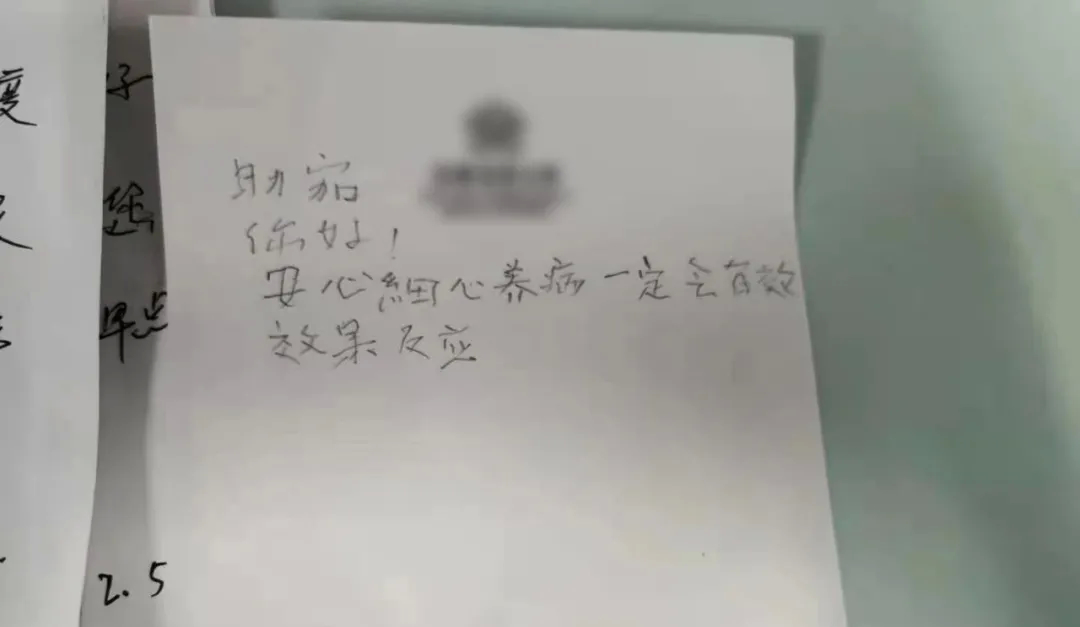 助家
你好！
安心細心养病一定会有效
效果反应
度
好
您
早点
2.5